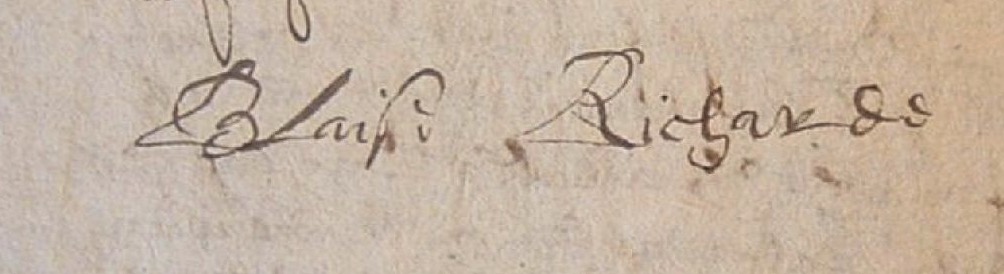 Blaise Richarde